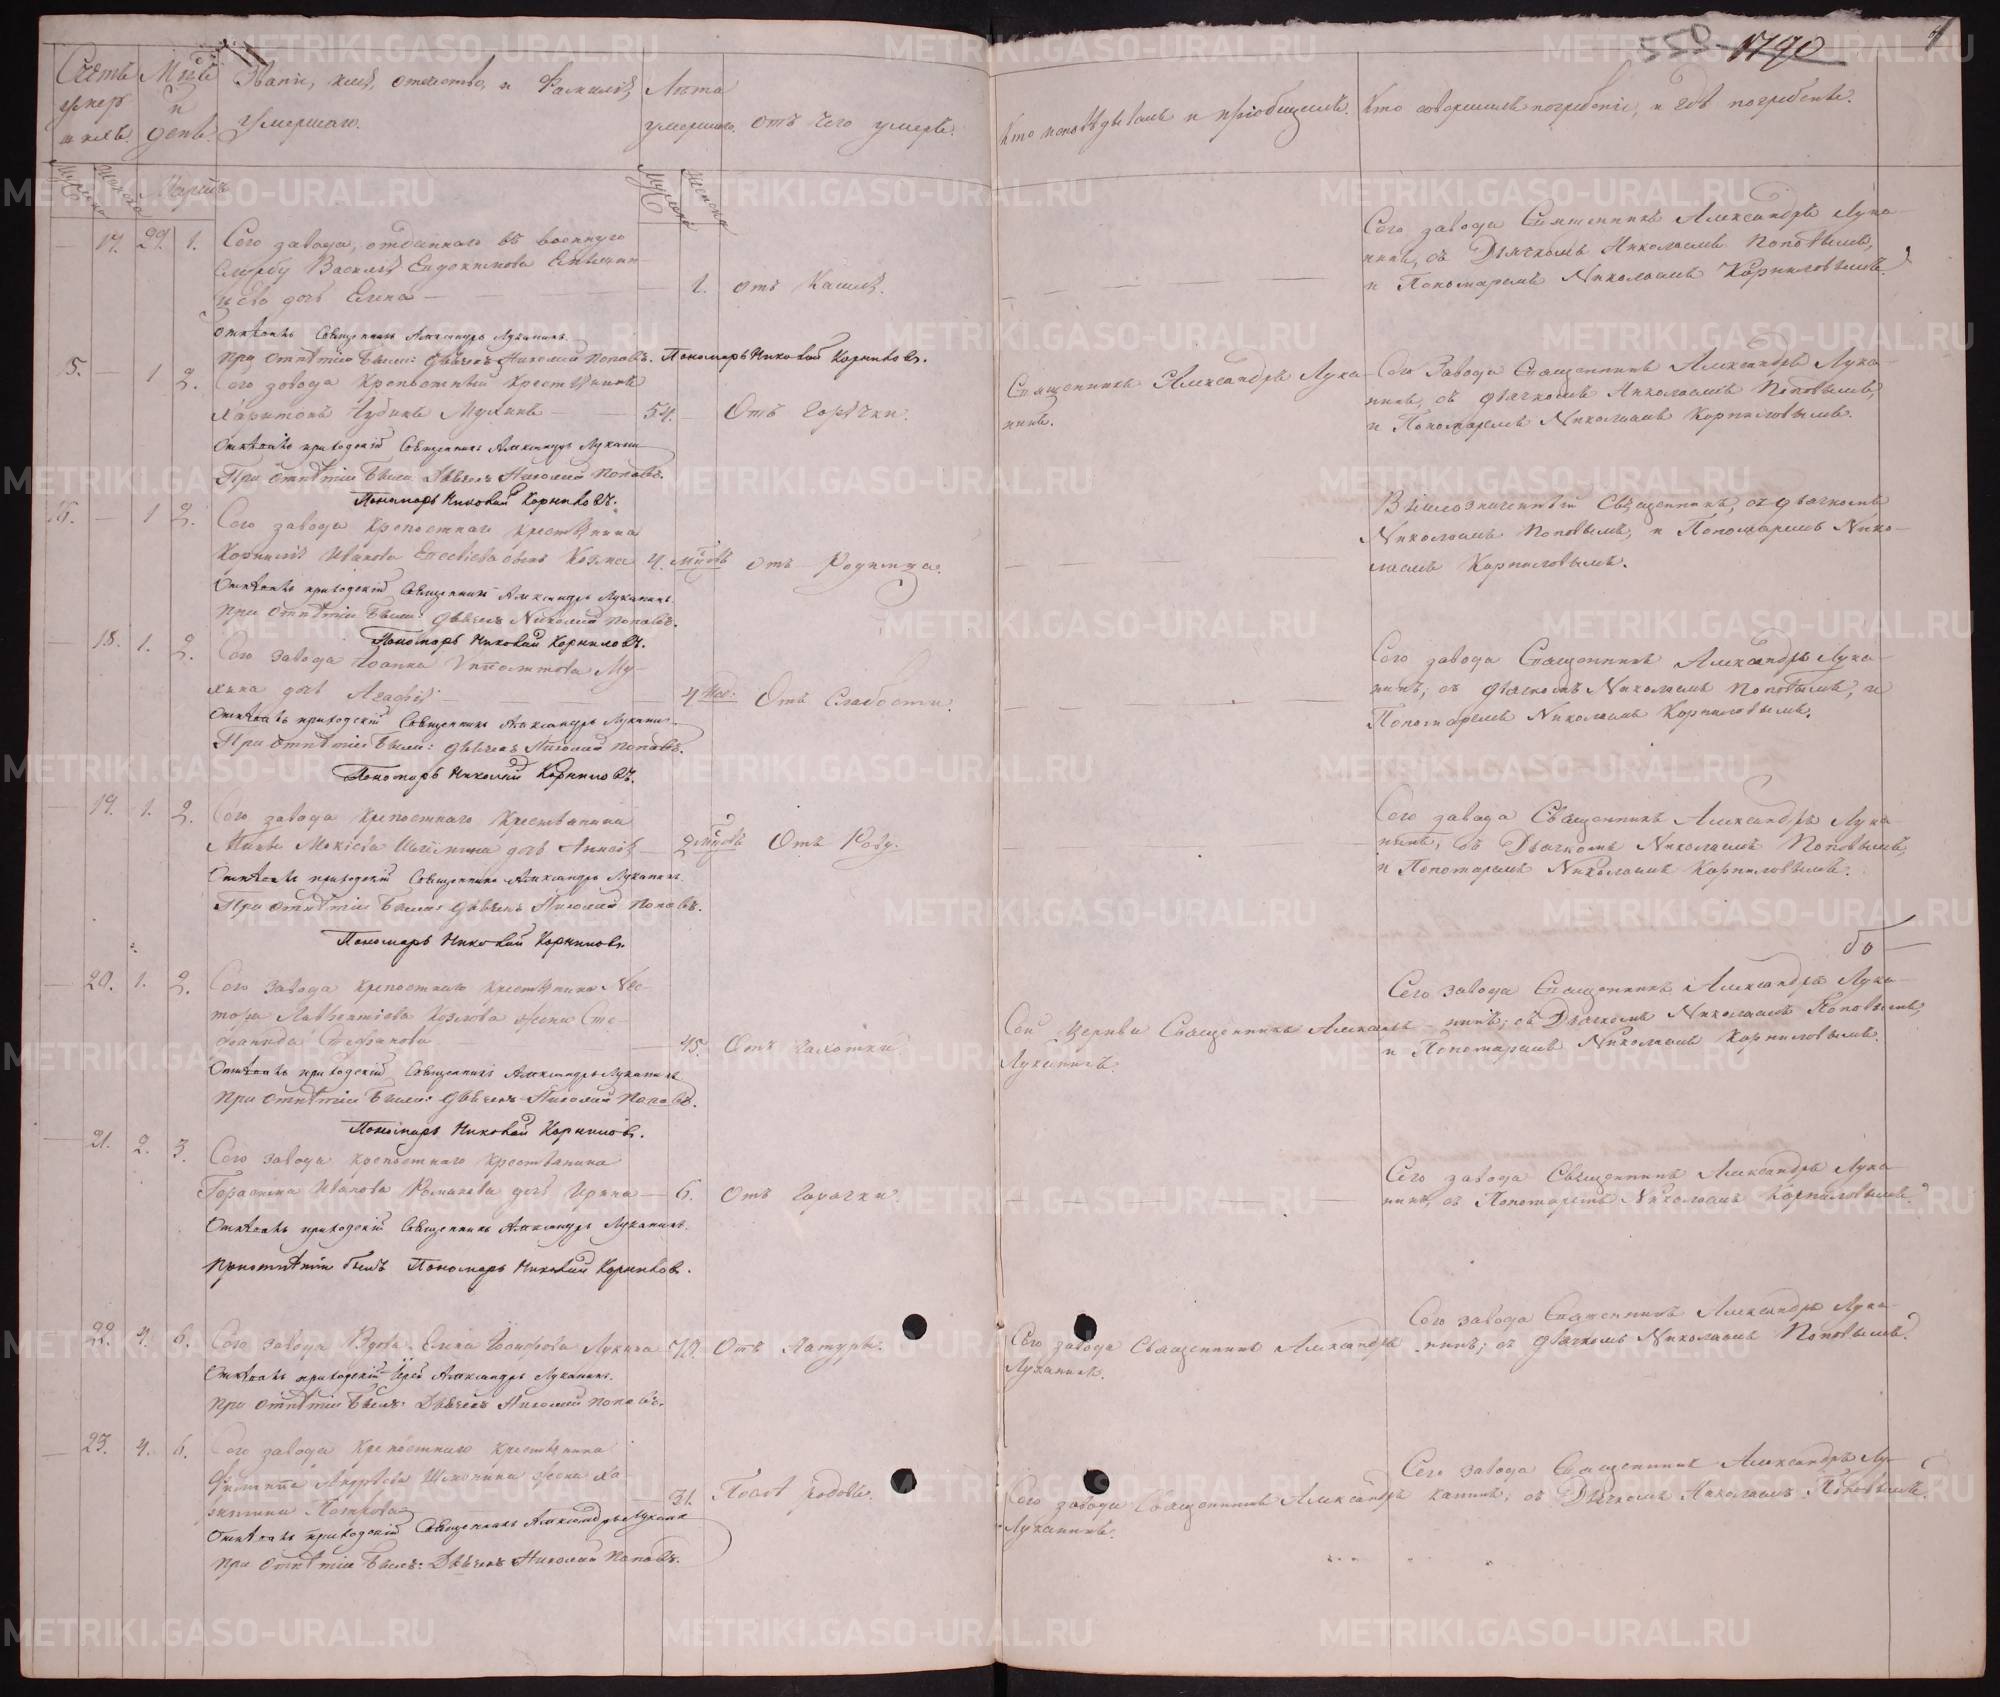 1790
Счетъ умер шихъ.
Мцъ и день.
Званіе, имя, отчество, и Фамилія, умершаго.
Лѣта умершаго.
отъ чего умеръ.
Кто исповѣдывалъ и пріобщилъ.
Кто совершилъ погребеніе, и гдѣ погребенъ.
Мужска
Женска
Мартъ
Мужска
Женска
— 17. 29. 1.
Сего завода, отданнаго въ военную
службу Василія Евдокимова
дочь Елена —
1. отъ Кашля.
Сего завода Священникъ Александръ Лука-
нинъ, съ Дьячкомъ Николаемъ Поповымъ,
и Пономаремъ Николаемъ Корниловымъ.
Отпѣвалъ Священникъ Александръ Луканинъ.
При отпѣтіи были: дьячекъ Николай Поповъ. Пономарь Николай Корниловъ.
15. — 1 2.
Сего завода крепостный крестьянинъ
Харитонъ Мухинъ —
54. Отъ горячки.
Священникъ Александръ Лука-
нинъ.
Сего Завода Священникъ Александръ Лука-
нинъ, съ дьячкомъ Николаемъ Поповымъ,
и Пономаремъ Николаемъ Корниловымъ.
Отпѣвалъ приходскій Священникъ Александръ Луканин
При отпѣтіи были: Дьячекъ Николай Поповъ.
Пономарь Николай Корниловъ.
16. — 1 2.
Сего завода крепостнаго крестьянина
Корнилія Иванова сынъ Козма
4. мцовъ отъ Родимца.
Вышеозначенный Священникъ, съ дьячкомъ
Николаемъ Поповымъ, и Пономаремъ Нико-
лаемъ Корниловымъ.
Отпѣвалъ приходскій Священникъ Александръ Луканинъ.
При отпѣтіи были: дьячекъ Николай Поповъ.
Пономарь Николай Корниловъ.
— 18. 1. 2.
Сего завода Іоанна Ипполитова Му-
хина дочь Агафія
4 нед: Отъ Слабости.
Сего завода Священникъ Александръ Лука-
нинъ; съ дьячкомъ Николаемъ Поповымъ, и
Пономаремъ Николаемъ Корниловымъ.
Отпѣвалъ приходскій Священникъ Александръ Луканин
При отпѣтіи были: дьячекъ Николай Поповъ.
Пономарь Николай Корниловъ.
— 19. 1. 2.
Сего завода крепостнаго крестьянина
Мокіева дочь
2 мцовъ Отъ Роду.
Сего завода Священникъ Александръ Лука-
нинъ, съ Дьячкомъ Николаемъ Поповымъ,
и Пономаремъ Николаемъ Корниловымъ.
Отпѣвалъ приходскій Священникъ Александръ Луканинъ.
При отпѣтіи были: дьячекъ Николай Поповъ.
Пономарь Николай Корниловъ.
— 20. 1. 2.
Сего завода крепостнаго крестьянина Нес-
тора Лаврентіева Козлова жена Сте-
фанида Стефанова
45. Отъ чахотки
Сей церкви Священникъ Александръ
Луканинъ.
Сего завода Священникъ Александръ Лука-
нинъ; съ Дьячкомъ Николаемъ Поповымъ,
и Пономаремъ Николаемъ Корниловымъ.
Отпѣвалъ приходскій Священникъ Александръ Луканинъ
При отпѣтіи были: дьячекъ Николай Поповъ.
Пономарь Николай Корниловъ.
— 21. 2. 3.
Сего завода крепостнаго крестьянина
Герасима Иванова Романова дочь Ирина —
6. Отъ горячки.
Сего завода Священникъ Александръ Лука-
нинъ, съ Пономаремъ Николаемъ Корниловымъ.
Отпѣвалъ приходскій Священникъ Александръ Луканинъ.
При отпѣтіи былъ Пономарь Николай Корниловъ.
22. 4. 6.
Сего завода Вдова Елена Іосифова Лукина
70. Отъ Натуры.
Сего завода Священникъ Александръ
Луканинъ.
Сего завода Священникъ Александръ Лука-
нинъ; съ дьячкомъ Николаемъ Поповымъ.
Отпѣвалъ приходскій Іерей Александръ Луканинъ.
При отпѣтіи былъ: Дьячекъ Николай Поповъ.
— 23. 4. 6.
Сего завода крепостнаго крестьянина
Филиппа Андрѣева жена
Петрова
31. Послѣ родовъ.
Сего завода Священникъ Александръ
Луканинъ.
Сего завода Священникъ Александръ Лу-
канинъ, съ Дьячкомъ Николаемъ Поповымъ.
Отпѣвалъ приходскій Священникъ Александръ Лукани
При отпѣтіи былъ: Дьячекъ Николай Поповъ.
METRIKI.GASO-URAL.RU